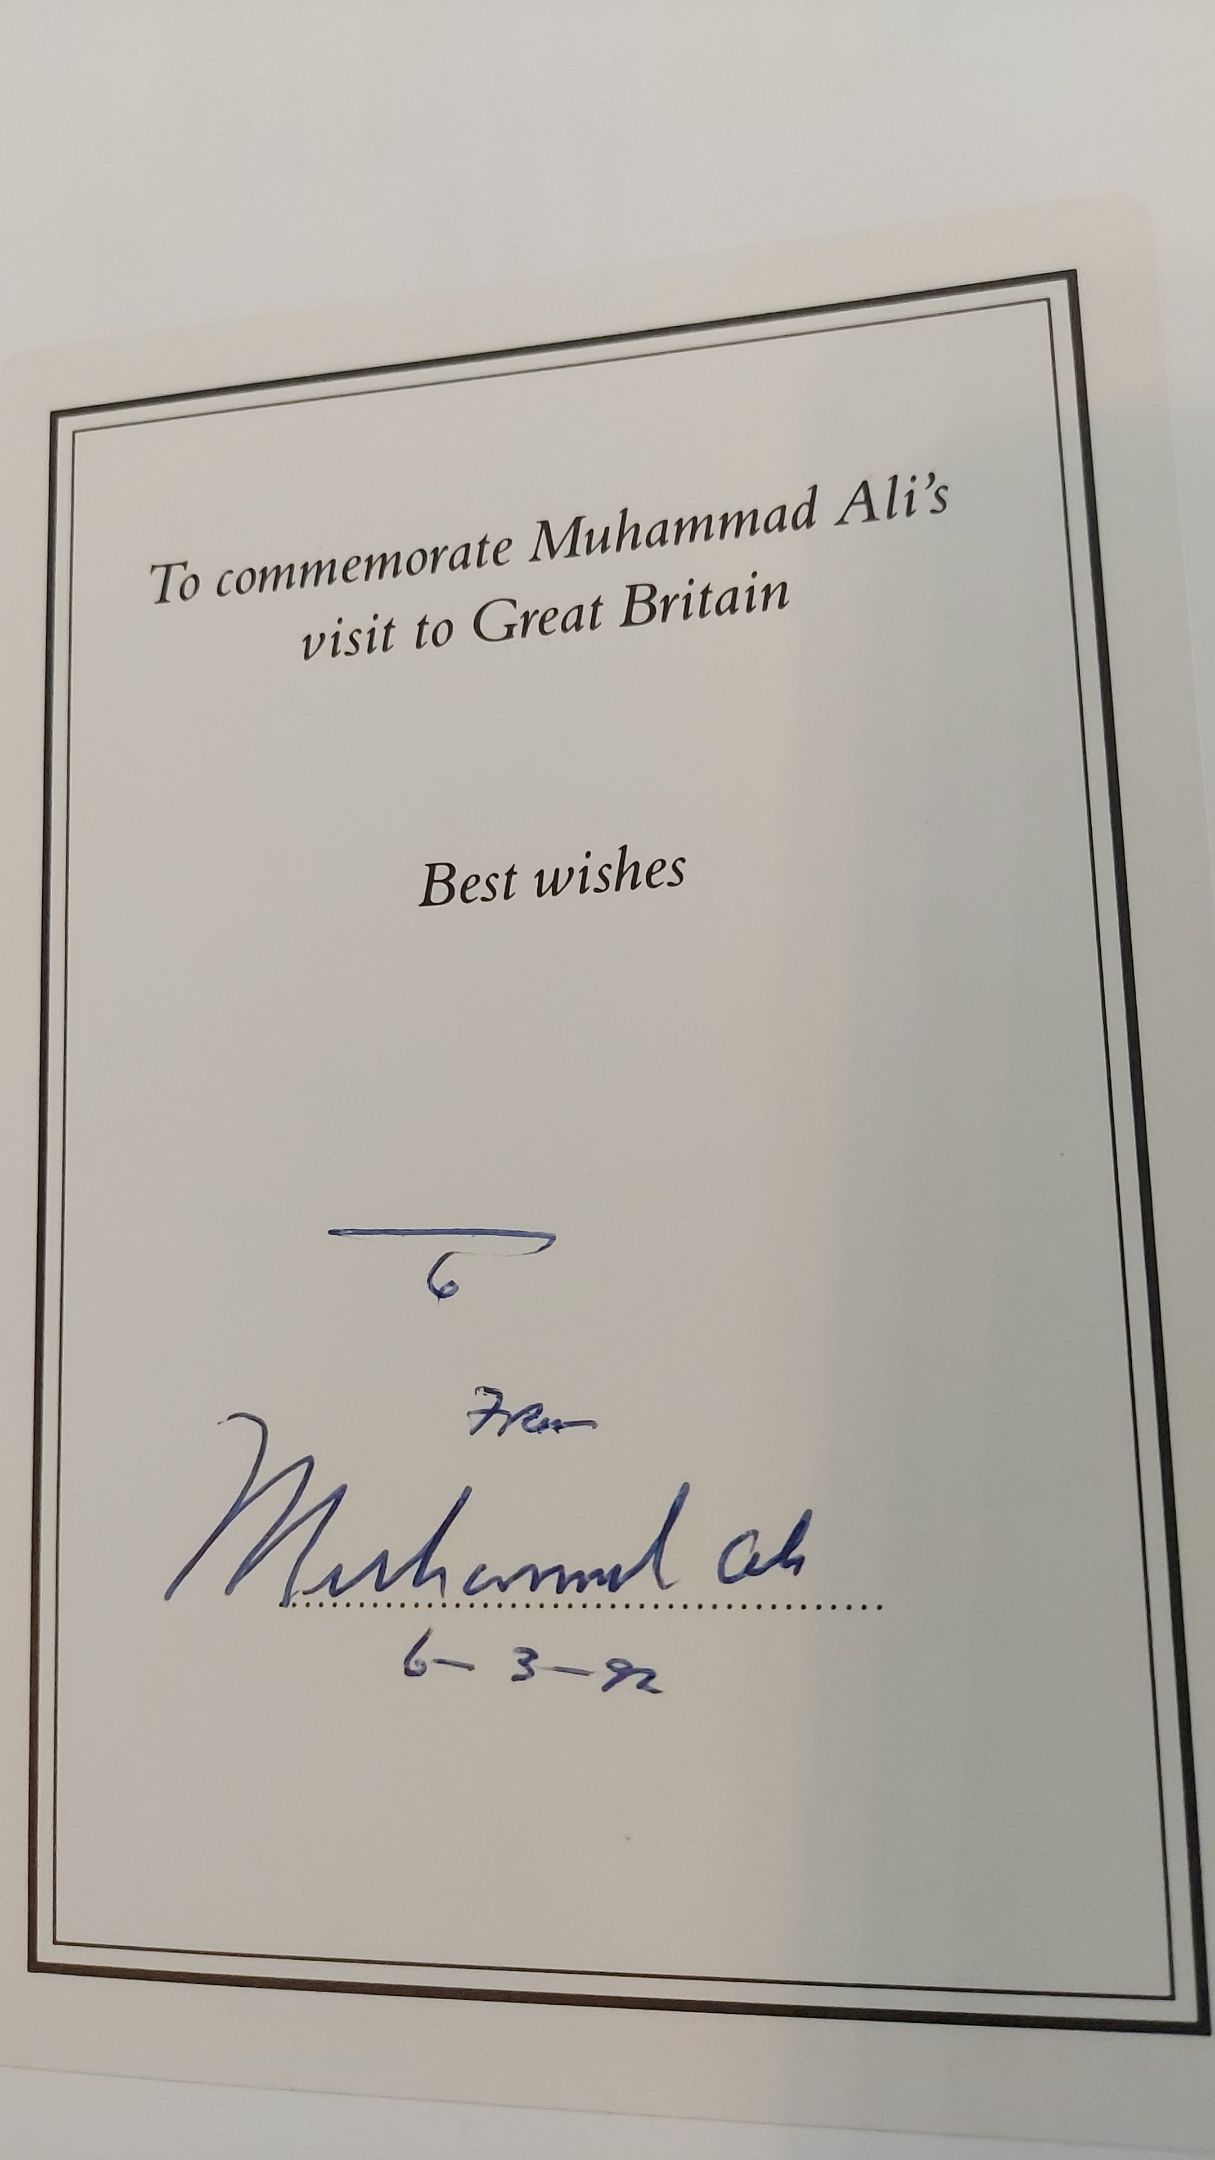 To commemorate Muhammad Ali's
visit to Great Britain
Best wishes
6
From
Muhammad Ali
6-3-92